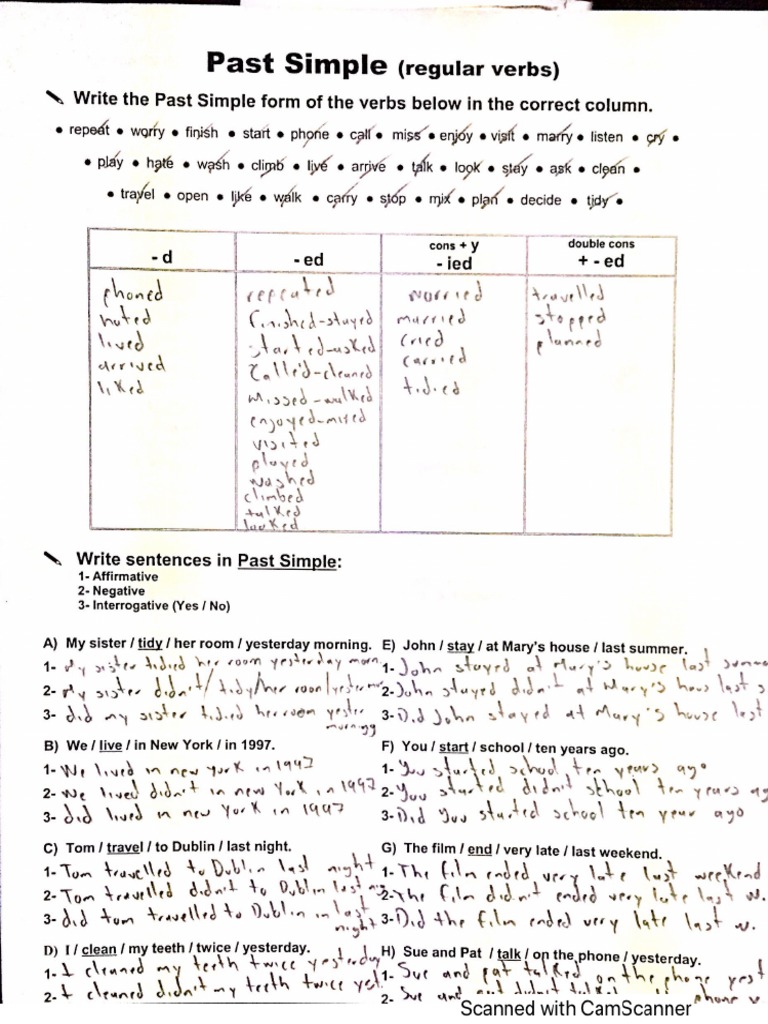 Past Simple (regular verbs)
Write the Past Simple form of the verbs below in the correct column.
• repeat • worry • finish • start • phone • call • miss • enjoy • visit • marry • listen • cry •
• play • hate • wash • climb • live • arrive • talk • look • stay • ask • clean •
• travel • open • like • walk • carry • stop • mix • plan • decide • tidy •
- d
- ed
cons + y
- ied
double cons
+ - ed
phoned
hated
lived
arrived
liked
repeated
finished-stayed
started-asked
called-cleaned
missed-walked
enjoyed-mixed
visited
played
washed
climbed
talked
looked
worried
married
cried
carried
tidied
travelled
stopped
planned
Write sentences in Past Simple:
1- Affirmative
2- Negative
3- Interrogative (Yes / No)
A) My sister / tidy / her room / yesterday morning.
1- My sister tidied her room yesterday morn
2- My sister didn't / tidy / her room / yester
3- did my sister tidied her room yester
morningg
B) We / live / in New York / in 1997.
1- We lived in new york in 1997
2- We lived didn't in new York in 1997
3- did lived in new York in 1997
C) Tom / travel / to Dublin / last night.
1- Tom travelled to Dublin last night
2- Tom travelled didn't to Dublin last
3- did tom travelled to Dublin in last
night
D) I / clean / my teeth / twice / yesterday.
1- I cleaned my teeth twice yesterday
2- I cleaned didn't my teeth twice yest
E) John / stay / at Mary's house / last summer.
1- John stayed at Mary's house last summe
2- John stayed didn't at Mary's hous last s
3- Did John stayed at Mary's house last
F) You / start / school / ten years ago.
1- You started school ten years ago
2- You started didn't school ten years ag
3- Did you started school ten year ago
G) The film / end / very late / last weekend.
1- The film ended very late last weekend
2- The film didn't ended very late last w.
3- Did the film ended very late last w.
H) Sue and Pat / talk / on the phone / yesterday.
1- Sue and pat talked on the phone yest
2- Sue and didn't talked phone
Scanned with CamScanner